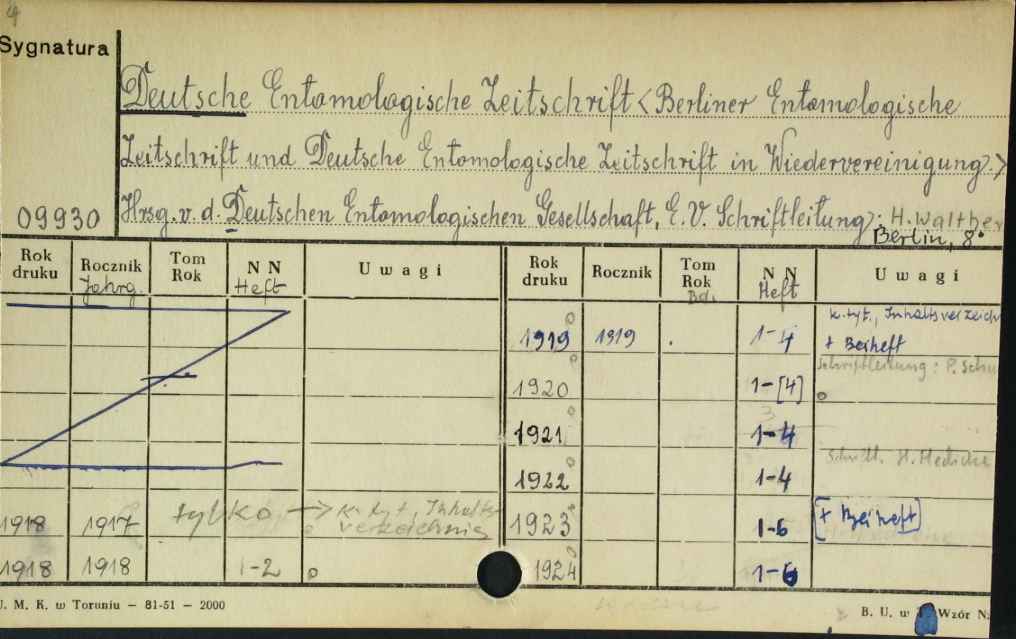 4
Sygnatura
Deutsche Entomologische Zeitschrift <Berliner Entomologische
Zeitschrift und Deutsche Entomologische Zeitschrift in Wiedervereinigung.>
09930 Hrsg. v. d. Deutschen Entomologischen Gesellschaft, E.V. Schriftleitung: H. Walther
Berlin, 8°
Rok druku Rocznik Jahrg. Tom Rok N N Heft Uwagi Rok druku Rocznik Tom Rok Bd. N N Heft Uwagi
1919 1919 1-4 k. tyt., Inhaltsverzeichn
+ Beiheft
1920 1-[4] Schriftleitung: P. Schu
1921 3 1-4
1922 1-4 H. Hedicke
1918 1917 tylko → k. tyt, Inhalts-
verzeichnis 1923 1-6 [+ Beiheft]
1918 1918 1-2 1924 1-6
U. M. K. w Toruniu – 81-51 – 2000 B. U. w Wzór N